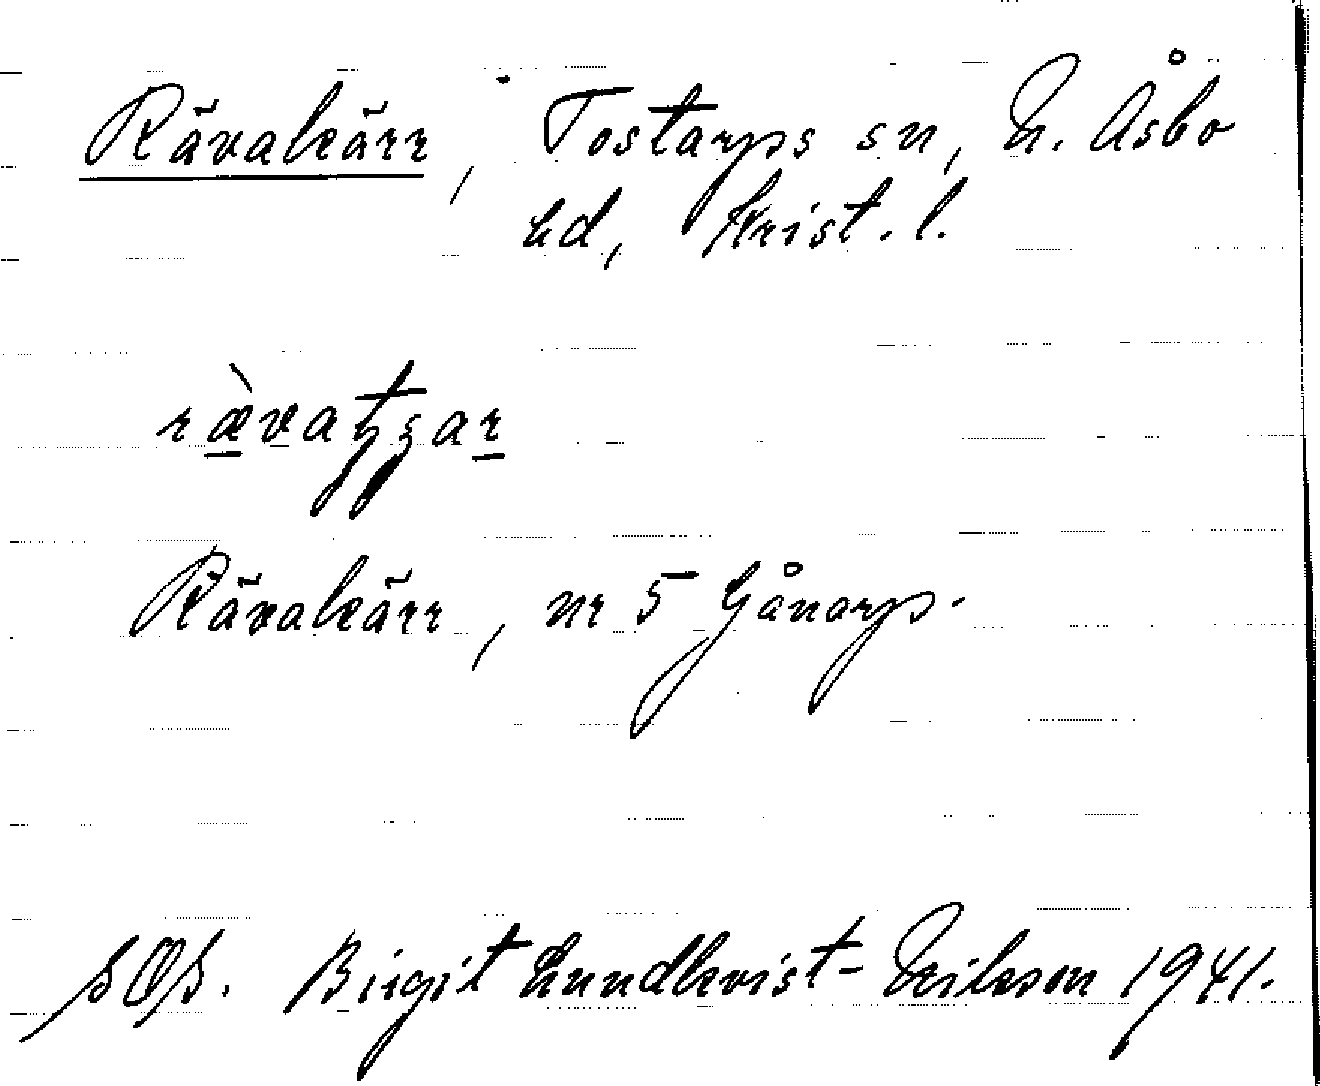 Rävakärr, Tostarps sn, N. Åsbo
hd, Krist. l.
Rävakärr, nr 5 Gånarp.
Birgit Lundkvist-Erikson 1941.